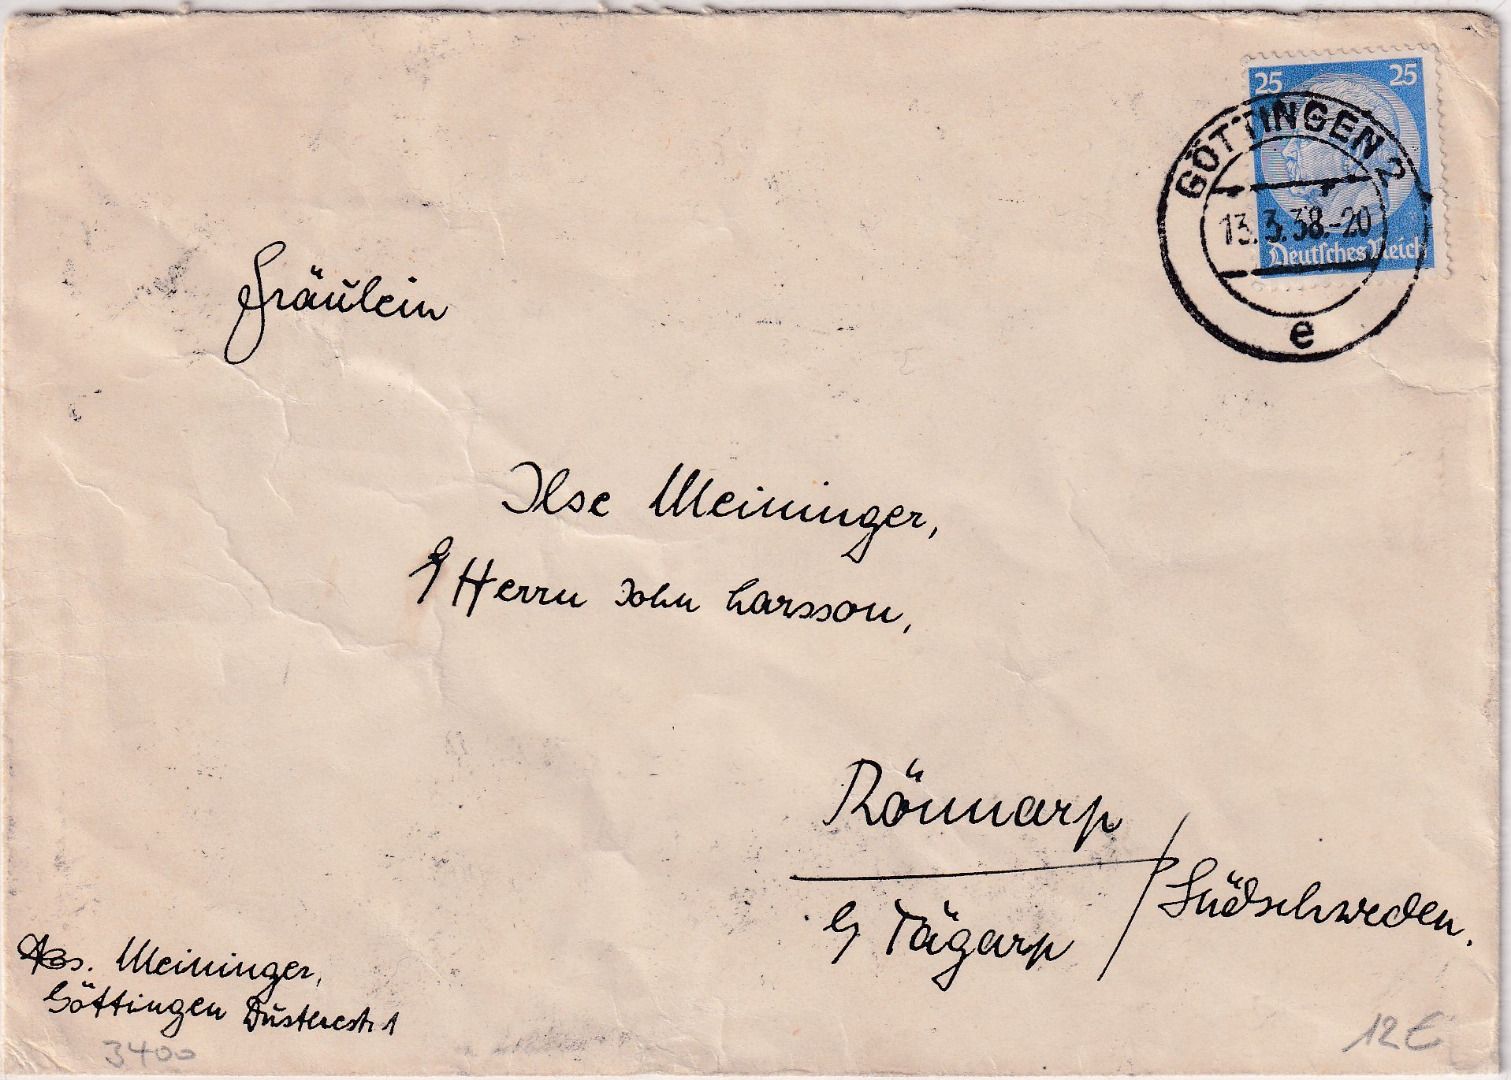 25 25
GÖTTINGEN 2
13.3.38.-20
Deutsches Reich
e
Fräulein
Ilse Meininger,
Herrn John Larsson,
Rönnarp
Tågarp / Südschweden.
Abs. Meininger,
Göttingen Düsterestr. 1
3400
12€